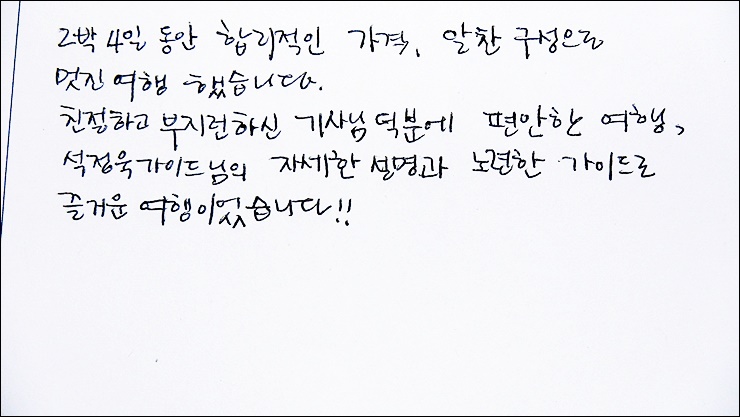 2박 4일 동안 합리적인 가격, 알찬 구성으로
멋진 여행 했습니다.
친절하고 부지런하신 기사님 덕분에 편안한 여행,
석정욱가이드님의 자세한 설명과 노련한 가이드로
즐거운 여행이었습니다!!